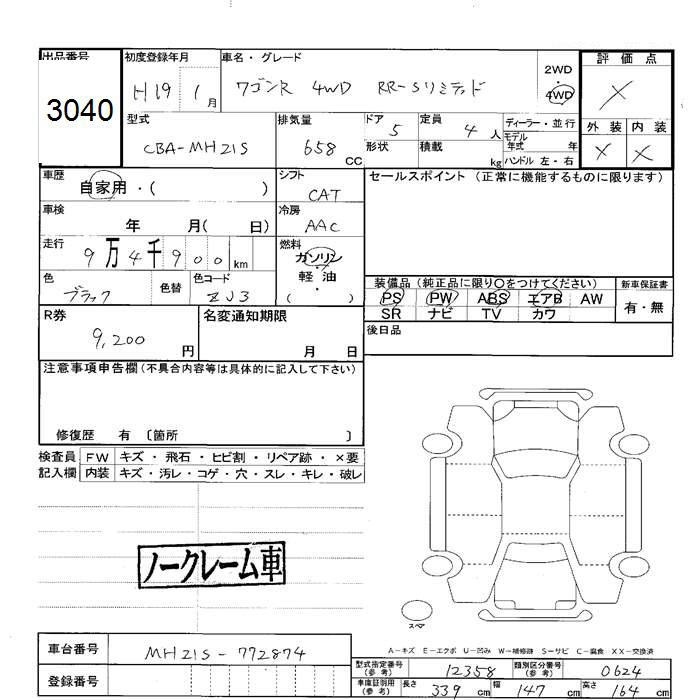 出品番号 初度登録年月 車名・グレード 評価点
3040 H19 1月 ワゴンR 4WD RR-Sリミテッド 2WD 4WD X
型式 排気量 ドア 定員 ディーラー・並行 外装 内装
CBA-MH21S 658CC 5 4人 モデル年式 年 X X
形状 積載 kg ハンドル 左・右
車歴 シフト セールスポイント (正常に機能するものに限ります)
自家用・( ) CAT
車検 冷房
年 月( 日) AAC
走行 燃料
9万4千900km ガソリン・軽油・( )
色 色替 色コード 装備品 (純正品に限り○をつけてください) 新車保証書
ブラック ZJ3 PS PW ABS エアB AW 有・無
R券 名変通知期限 SR ナビ TV カワ
9,200円 月 日 後日品
注意事項申告欄(不具合内容等は具体的に記入して下さい)
修復歴 有 〔箇所 〕
検査員 FW キズ・飛石・ヒビ割・リペア跡・×要
記入欄 内装 キズ・汚レ・コゲ・穴・スレ・キレ・破レ
ノークレーム車
スペア
A-キズ E-エクボ U-凹み W-補修跡 S-サビ C-腐食 XX-交換済
車台番号 MH21S-772874
登録番号
型式指定番号(参考) 12358 類別区分番号(参考) 0624
車庫証明用(参考) 長さ 339cm 幅 147cm 高さ 164cm